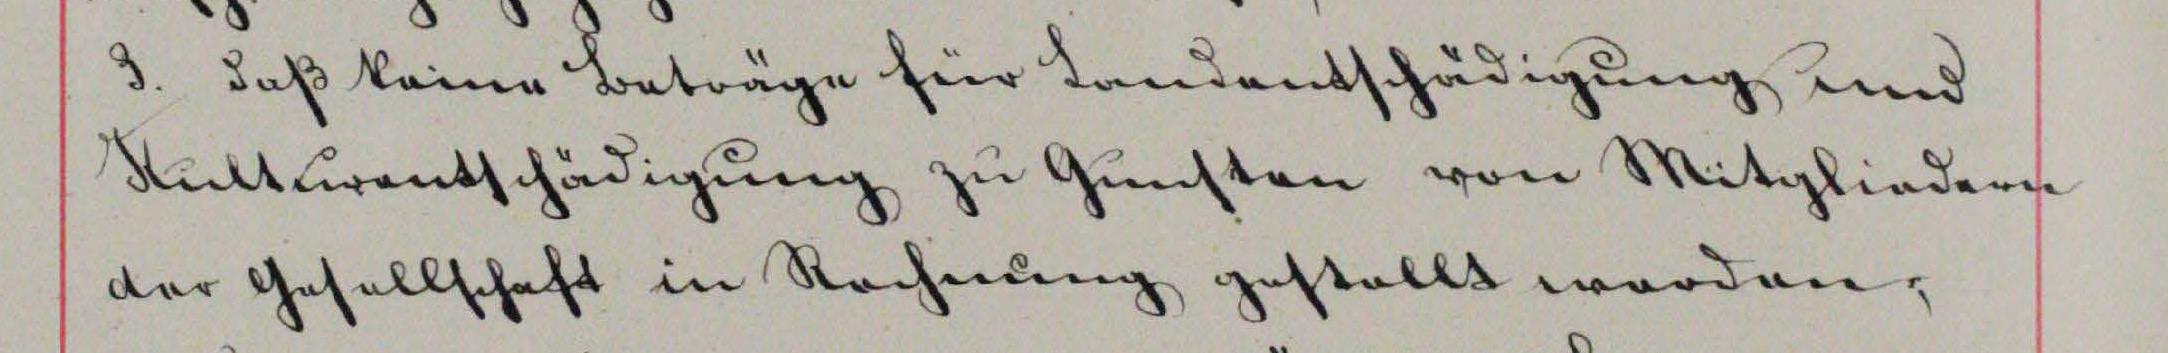 3. daß keine Beträge für Landentschädigung und
Kulturentschädigung zu Gunsten von Mitgliedern
der Gesellschaft in Rechnung gestellt werden;